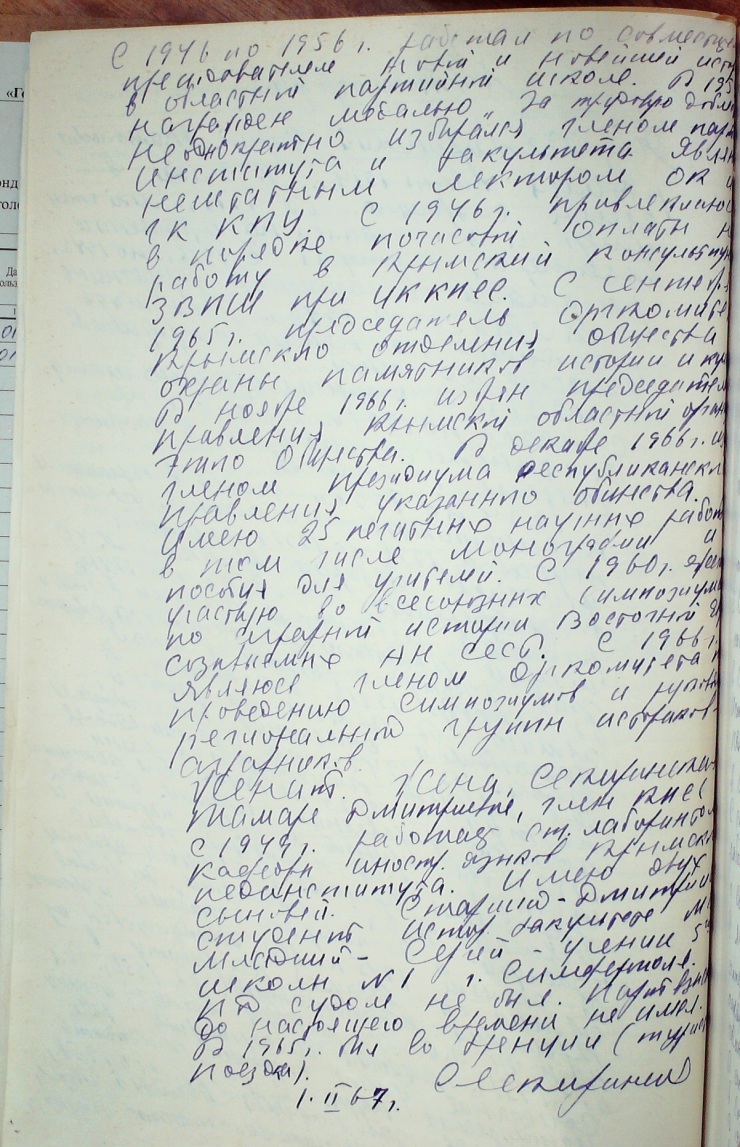 С 1946 по 1956 г. работал по совместит
преподавателем новой и новейшей ист
в областной партийной школе. В 195
награжден медалью „За трудовую добл
Неоднократно избирался членом парт
института и факультета. Явля
нештатным лектором ОК и
ГК КПУ. С 1946 г. привлекаюс
в порядке почасовой оплаты н
работу в Крымский консультпун
ЗВПШ при ЦК КПСС. С сентябр
1965 г. председатель Оргкомите
Крымского отделения общества
охраны памятников истории и кул
В ноябре 1966 г. избран председател
правления Крымской областной орган
этого общества. В декабре 1966 г. и
членом президиума республиканск
правления указанного общества.
Имею 25 печатных научных работ
в том числе монографии и
пособия для учителей. С 1960 г.
участвую во всесоюзных симпозиума
по аграрной истории Восточной Ев
созываемых АН СССР. С 1966 г.
являюсь членом оргкомитета п
проведению симпозиумов и руков
региональной группы историков-
аграрников.
Женат. Жена, Секиринская
Тамара Дмитриевна, член КПСС
с 1944 г. работает ст. лаборантом
кафедры иностр. языков Крымск
пединститута. Имею двух
сыновей. Старший - Дмитрий
студент истор. факультета М
младший - Сергей - ученик 5
школы № 1 г. Симферополя.
Под судом не был. Парт взыс
до настоящего времени не имел.
В 1965 г. был во Франции (турис
поездка).
1.II 67 г. С Секиринский